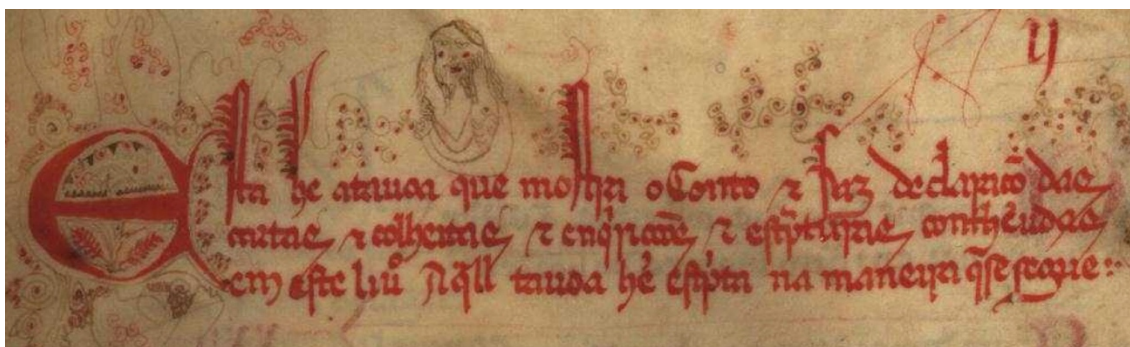 ij
Esta he atauoa que mostra o Conto & faz declaraçõ das
cartas & colheitas & enq̃rições & esp̃turas contheudas
em este liũ A q̃ll tauoa he esp̃ta na maneira q̃ se segue :·